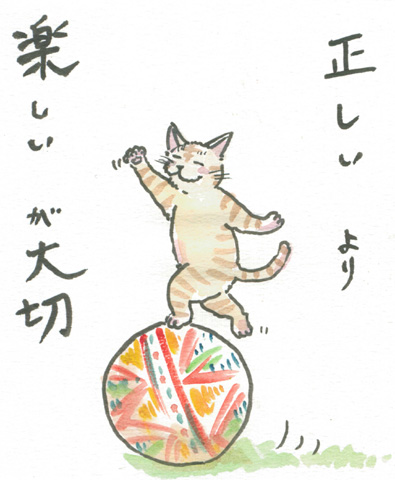 正しいより
楽しいが大切